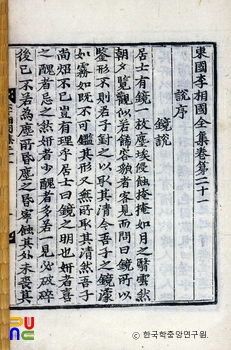 東國李相國全集卷第二十一
說序
鏡說
居士有鏡一枚塵埃侵蝕掩掩如月之翳雲然
朝夕覽觀似若飾容貌者客見而問曰鏡所以
鑒形不則君子對之以取其清今吾子之鏡濛
如霧如既不可鑑其形又無所取其清然吾子
尚炤不已豈有理乎居士曰鏡之明也妍者喜
之醜者忌之然妍者少醜者多若一見必破碎
後已不若爲塵所昏塵之昏寧蝕其外未喪其
© 한국학중앙연구원